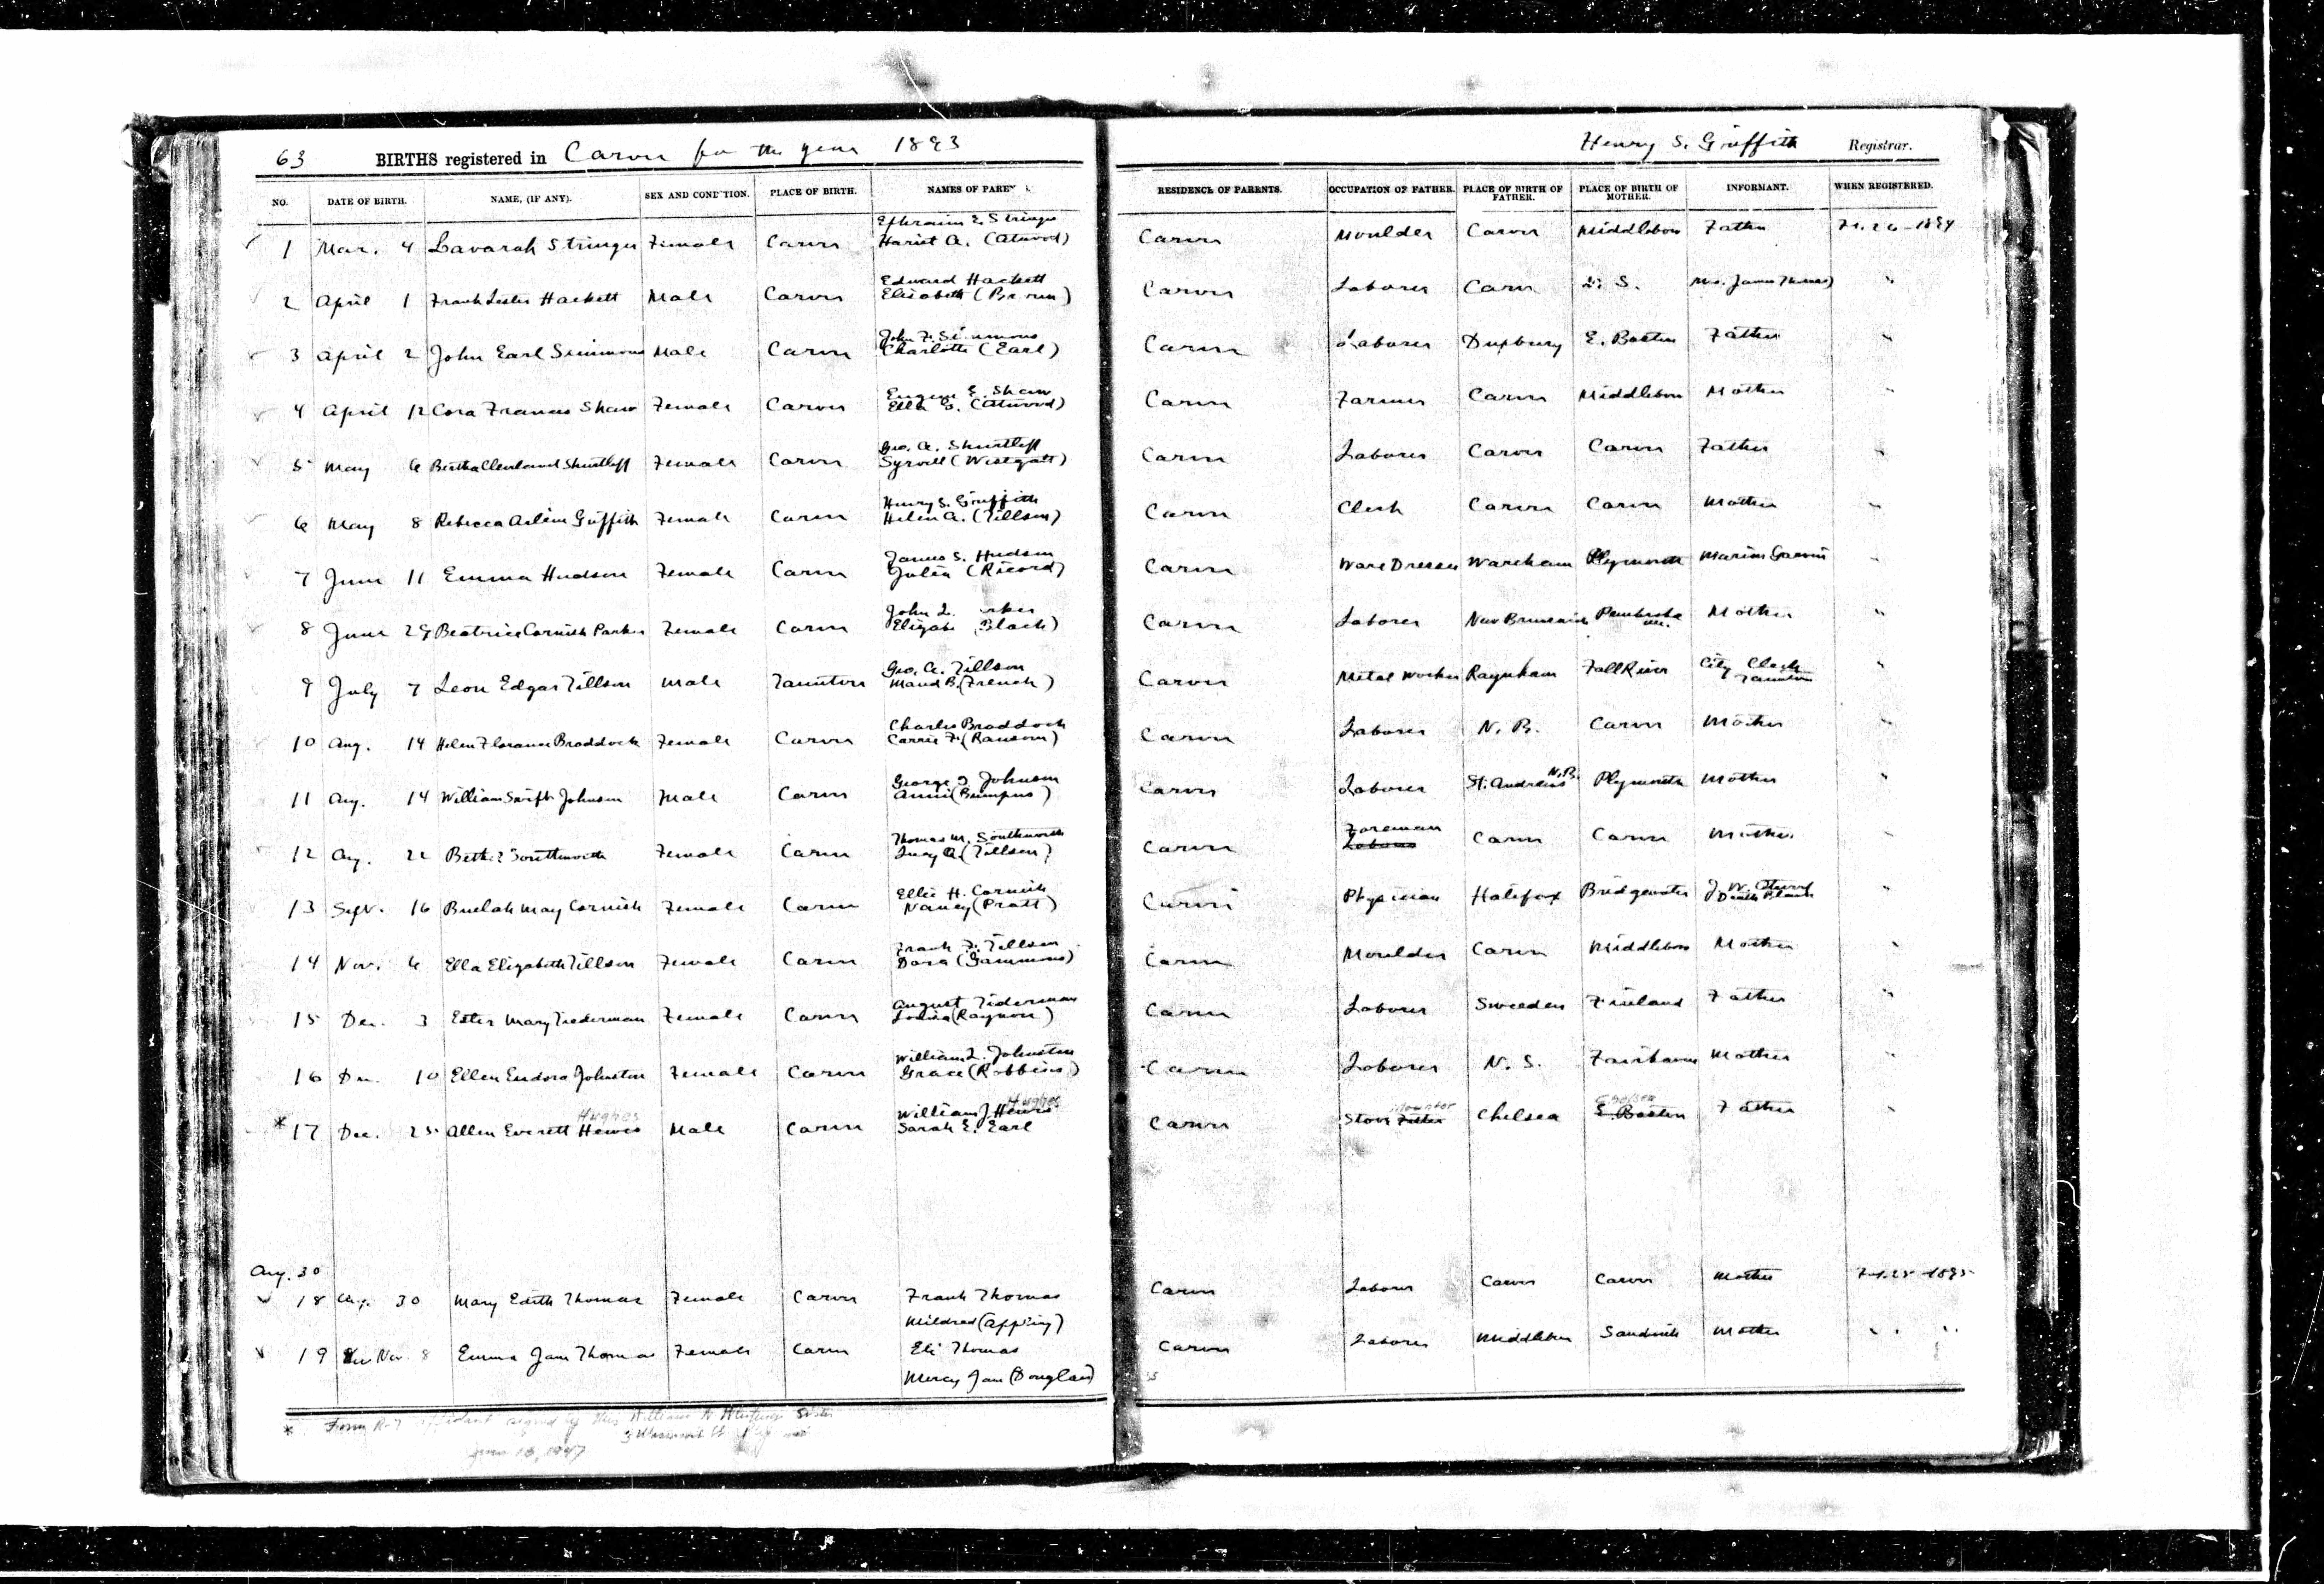 63 BIRTHS registered in Carver for the year 1893 Henry S. Griffith Registrar.
NO. DATE OF BIRTH. NAME, (IF ANY). SEX AND CONDITION. PLACE OF BIRTH. NAMES OF PARE RESIDENCE OF PARENTS. OCCUPATION OF FATHER. PLACE OF BIRTH OF FATHER. PLACE OF BIRTH OF MOTHER. INFORMANT. WHEN REGISTERED.
Ephraim E. Stringer
1 Mar. 4 Lavarah Stringer Female Carver Hariet A. (Atwood) Carver Moulder Carver Middleboro Father 1894
Edward Hackett
2 April 1 Frank Lester Hackett Male Carver Elizabeth (Brown) Carver Laborer Carver S. Mrs. James Thomas) "
John F. Simmons
3 April 2 John Earl Simmons Male Carver Charlotte (Earl) Carver Laborer Duxbury E. Boston Father "
Eugene E. Shaw
4 April 12 Cora Frances Shaw Female Carver Ella S. (Atwood) Carver Farmer Carver Middleboro Mother "
Geo. A. Shurtleff
5 May 6 Bertha Cleveland Shurtleff Female Carver (Westgate) Carver Laborer Carver Carver Father "
Henry S. Griffith
6 May 8 Rebecca Griffith Female Carver Helen A. (Tillson) Carver Clerk Carver Carver Mother "
James S. Hudson
7 June 11 Emma Hudson Female Carver Julia (Ricord) Carver Ware Dresser Wareham Plymouth "
John L. arker
8 June 29 Beatrice Cornish Parker Female Carver Elizabe Black) Carver Laborer New Brunswick Pembroke Me. Mother "
Geo. A. Tillson
9 July 7 Leon Edgar Tillson Male Taunton Maud B. (French) Carver Metal Worker Raynham Fall River City Clerk Taunton "
Charles Braddock
10 Aug. 14 Helen Florance Braddock Female Carver Carrie F. (Ransom) Carver Laborer N. B. Carver Mother "
George J Johnson
11 Aug. 14 William Swift Johnson Male Carver Annie (Bumpus) Carver Laborer St. Andrews N.B. Plymouth Mother "
Thomas M. Southworth Foreman
12 Aug. 22 Southworth Female Carver Lucy A. (Tillson) Carver Laborer Carver Carver Mother "
Ellis H. Cornish
13 Sept. 16 Buelah May Cornish Female Carver Nancy (Pratt) Carver Physician Halifax Bridgewater J. W. Death Blank "
Frank F. Tillson
14 Nov. 6 Ella Elizabeth Tillson Female Carver Dora (Gammons) Carver Moulder Carver Middleboro Mother "
August Tiderman
15 Dec. 3 Ester Mary Tiederman Female Carver Carver Laborer Sweeden Finland Father "
William L. Johnston
16 Dec. 10 Ellen Eudora Johnston Female Carver Grace (Robbins) Carver Laborer N. S. Fairhaven Mother "
Hughes William J. Hewes Hughes Mounter Chelsea
* 17 Dec. 25 Allen Everett Hewes Male Carver Sarah E. Earl Carver Stove Fitter Chelsea E. Boston Father "
Aug. 30
18 Aug. 30 Mary Edith Thomas Female Carver Frank Thomas Carver Laborer Carver Carver Mother 25 1895
Mildred (Appling)
19 Nov. 8 Emma Jane Thomas Female Carver Eli Thomas Carver Laborer Middleboro Sandwich Mother " "
Mercy Jane (Douglas)
* Form R-7 signed by Mrs William
1947